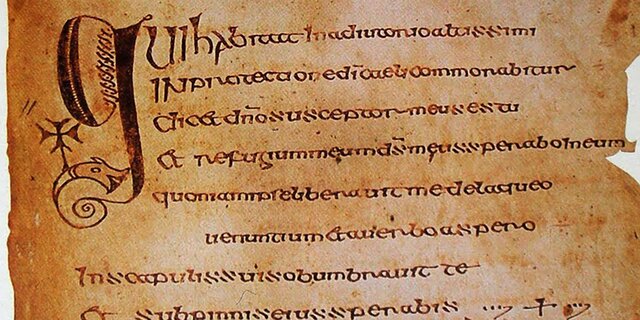 Qui habitat in adiutorio altissimi
IN protectione di caeli commorabitur
Dicet dn̄o susceptor meus es tu
et refugium meum ds̄ meus sperabo in eum
quoniam ipse liberauit me de laqueo
uenantium et a uerbo aspero
In scapulis suis obumbrauit te
et sub pinnis eius sperabis